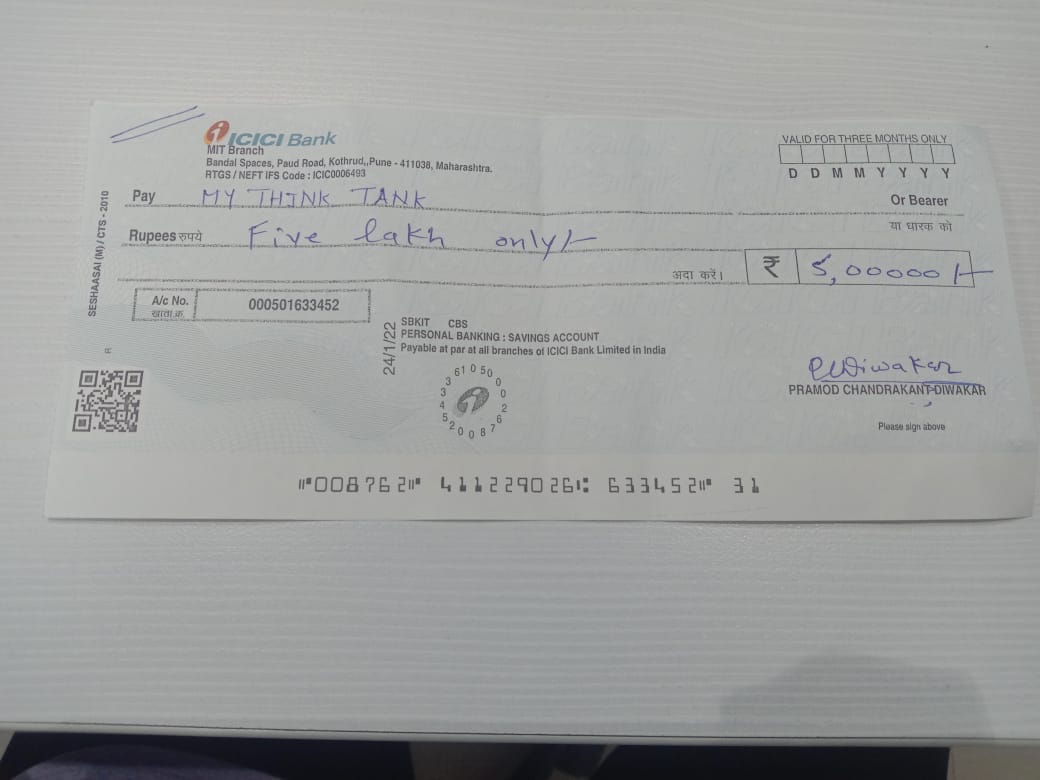 ICICI Bank
MIT Branch
Bandal Spaces, Paud Road, Kothrud,,Pune - 411038, Maharashtra.
RTGS / NEFT IFS Code : ICIC0006493
VALID FOR THREE MONTHS ONLY
D D M M Y Y Y Y
Pay MY THINK TANK Or Bearer
या धारक को
Rupees रुपये Five lakh only/-
अदा करें। ₹ 5,00000/-
A/c No. 000501633452
खाता क्र.
SESHAASAI (M) / CTS - 2010
R
24/1/22
SBKIT CBS
PERSONAL BANKING : SAVINGS ACCOUNT
Payable at par at all branches of ICICI Bank Limited in India
PDiwakar
PRAMOD CHANDRAKANT DIWAKAR
Please sign above
⑈008762⑈ 411229026⑆ 633452⑈ 31